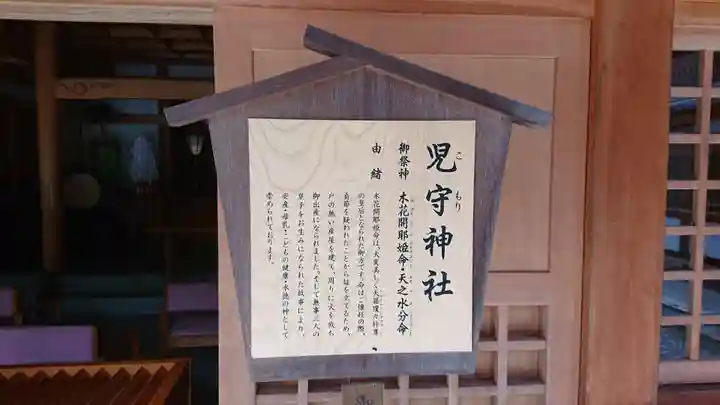 児守神社
こもり
御祭神 木花開耶姫命・天之水分命
由緒
木花開耶姫命は、大変美しく天孫瓊々杵尊
の皇后となられた御方です。命はご懐妊の際、
貞節を疑われたことから証を立てるため、
戸の無い産屋を建て、周りに火を放ち
御出産になられました。そして無事三人の
皇子をお生みになられた故事により、
安産・母乳・こどもの健康・水徳の神として
崇められております。